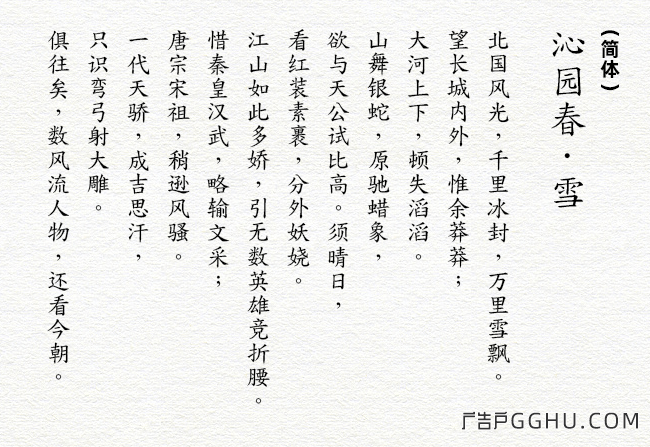 (简体)
沁园春·雪
北国风光，千里冰封，万里雪飘。
望长城内外，惟余莽莽；
大河上下，顿失滔滔。
山舞银蛇，原驰蜡象，
欲与天公试比高。须晴日，
看红装素裹，分外妖娆。
江山如此多娇，引无数英雄竞折腰。
惜秦皇汉武，略输文采；
唐宗宋祖，稍逊风骚。
一代天骄，成吉思汗，
只识弯弓射大雕。
俱往矣，数风流人物，还看今朝。
广告户GGHU.COM